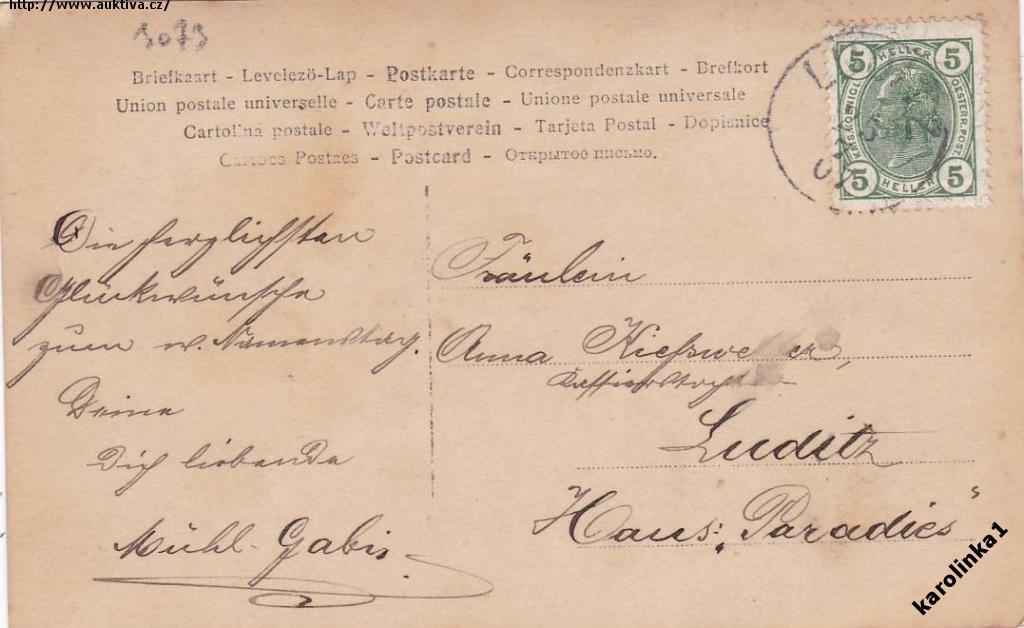 http://www.auktiva.cz/
3073
Briefkaart - Levelező-Lap - Postkarte - Correspondenzkart - Brefkort
Union postale universelle - Carte postale - Unione postale universale
Cartolina postale - Weltpostverein - Tarjeta Postal - Dopisnice
Cartões Postaes - Postcard - Открытое письмо.
5 HELLER 5
KAIS. KOENIGL. OESTERR. POST
5 HELLER 5
Die herzlichsten
Glückwünsche
zum w. Namenstag.
Deine
Dich liebende
Mühl-Gabi.
Fräulein
Anna
Luditz
Haus: „Paradies"
karolinka1